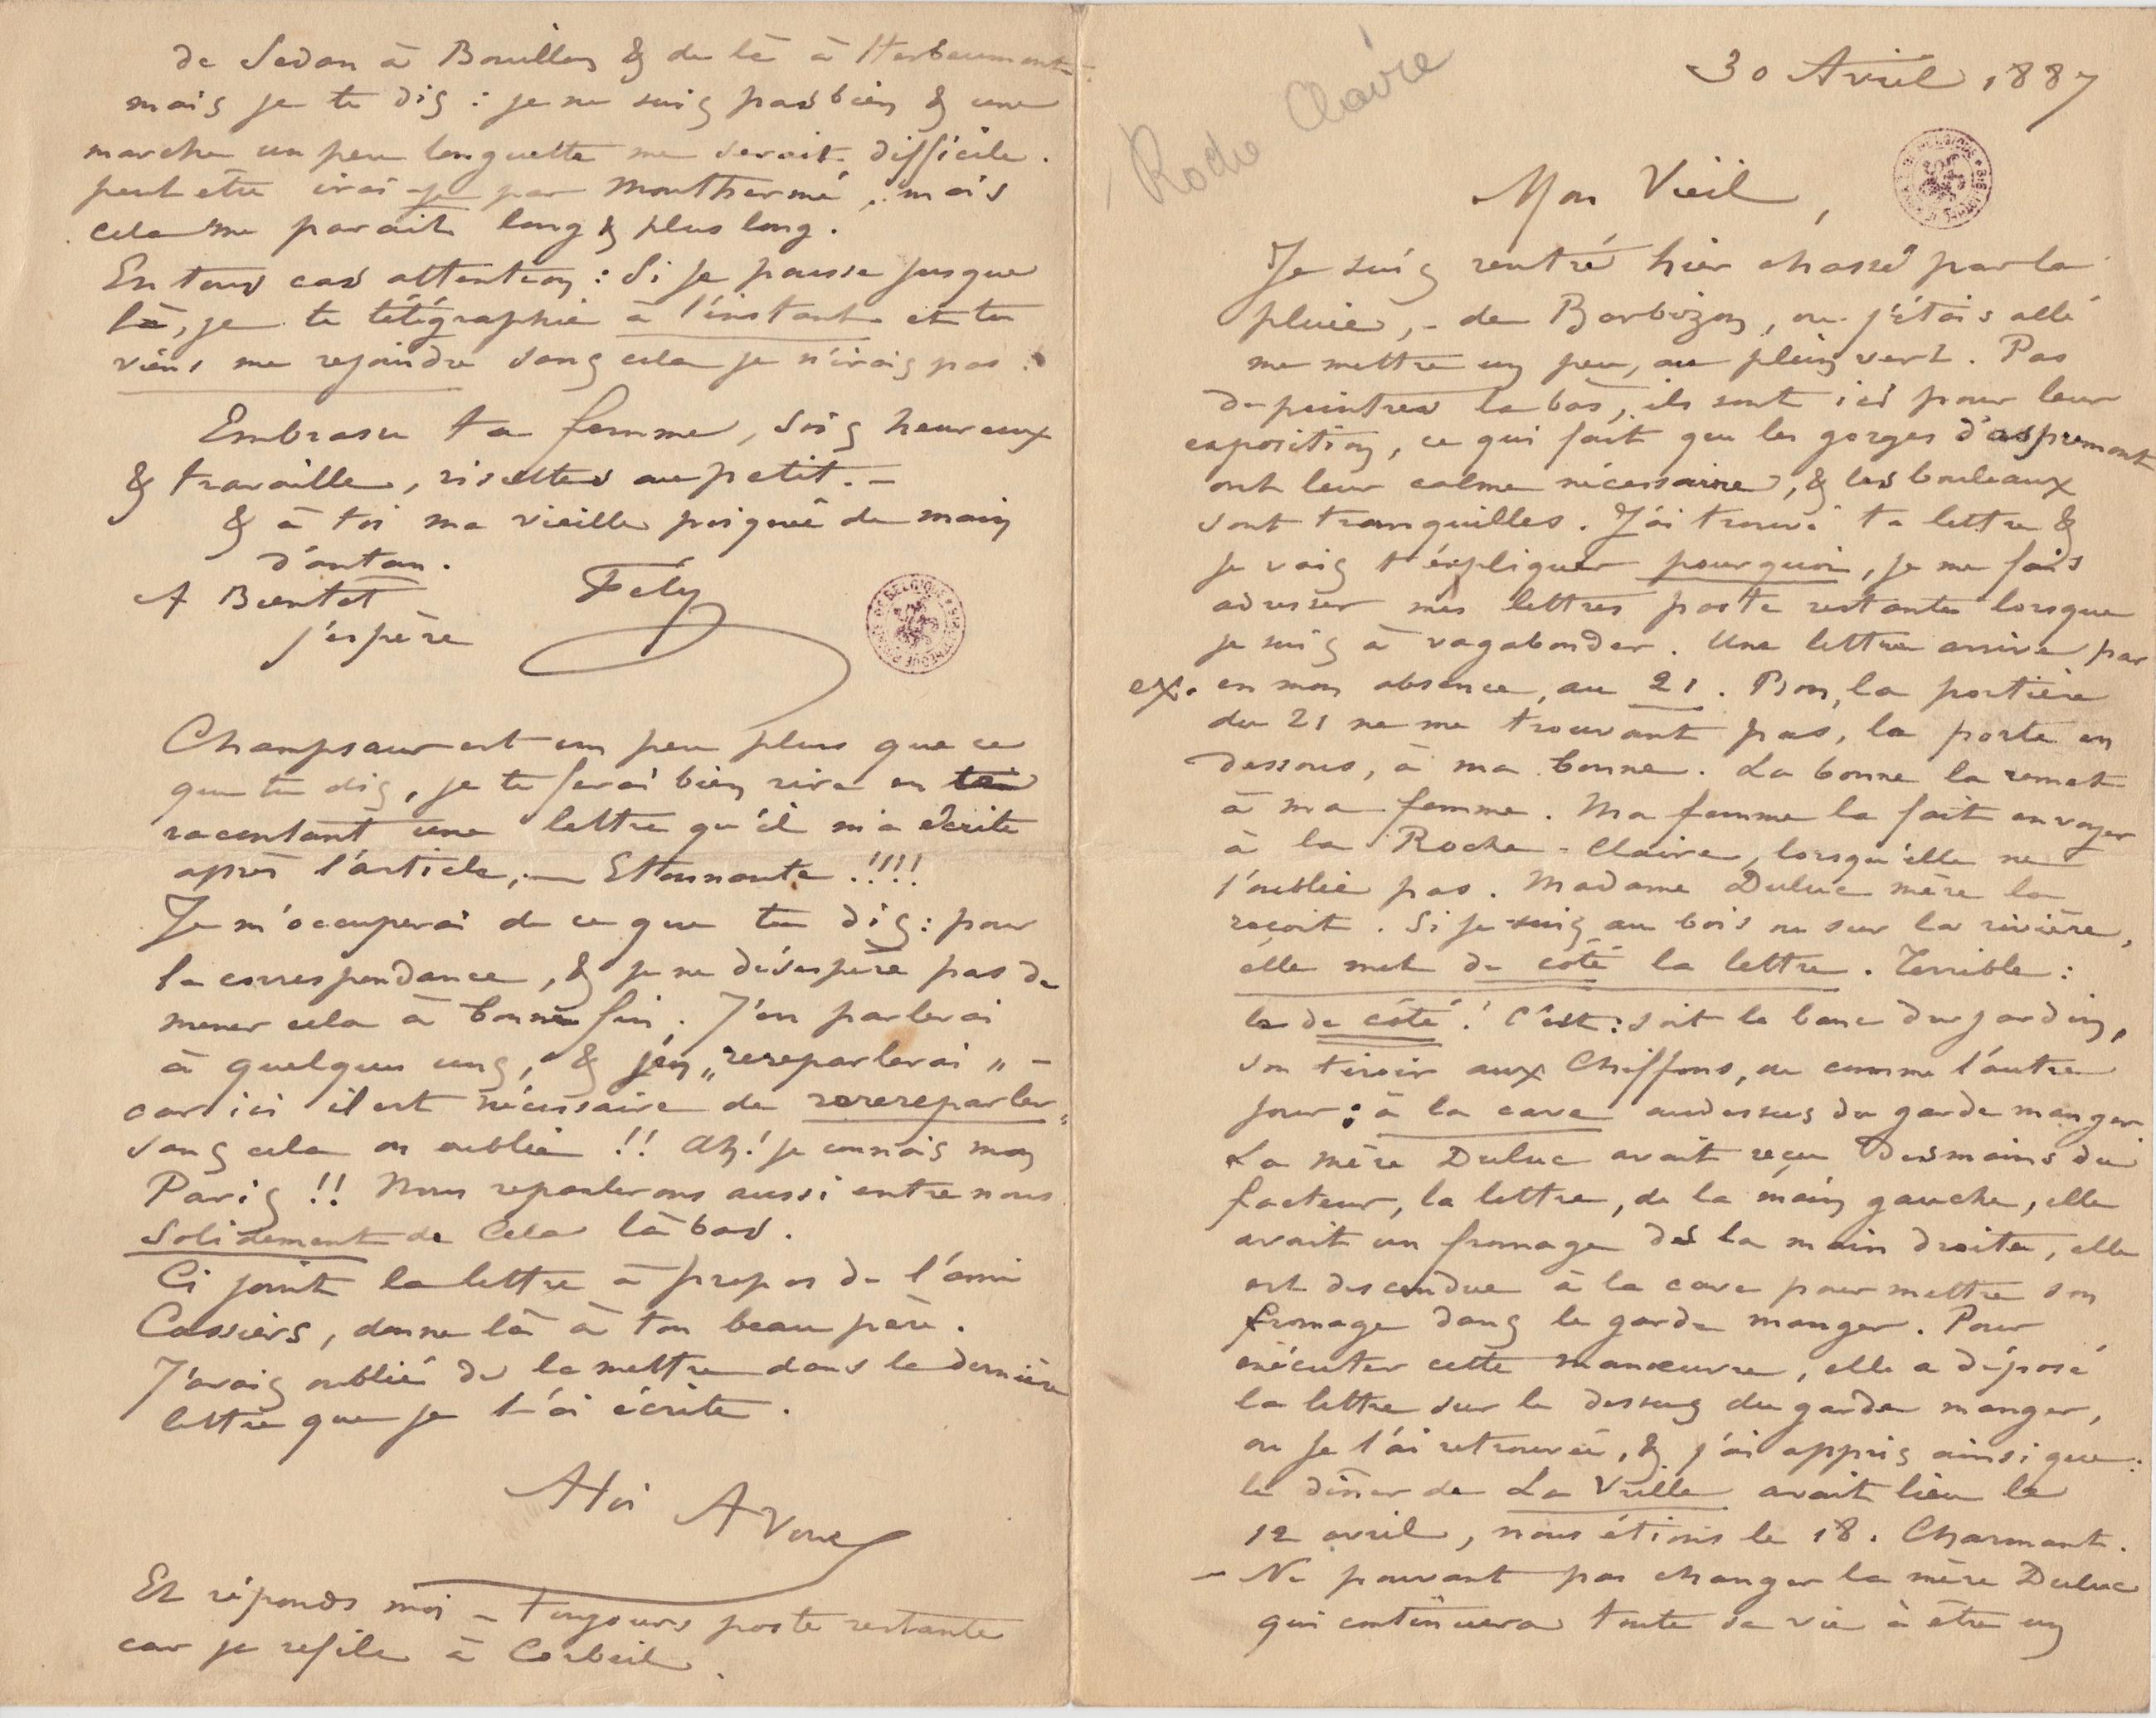 Roche Claire
30 Avril 1887
Mon Vieil,
Je suis rentré hier chassé par la
pluie, - de Barbizon, ou j'étais allé
me mettre un peu, au plein vert. Pas
de peintres la bas, ils sont ici pour leur
exposition, ce qui fait que les gorges d'aspremont
ont leur calme nécessaire, & les bouleaux
sont tranquilles. J'ai trouvé ta lettre &
je vais t'éxpliquer pourquoi, je me fais
adresser mes lettres poste restante lorsque
je suis à vagabonder. Une lettre arrive par
ex. en mon absence, au 21. Bon, la portière
du 21 ne me trouvant pas, la porte en
dessous, à ma bonne. La bonne la remet
à ma femme. Ma femme la fait envoyer
à la Roche-Claire, lorsqu'elle ne
l'oublie pas. Madame Duluc mère la
reçoit. Si je suis au bois ou sur la rivière,
elle met de coté la lettre. Terrible :
le de côté ! C'est : soit le banc du jardin,
son tiroir aux Chiffons, ou comme l'autre
jour : à la cave audessus du garde manger
La mère Duluc avait reçu des mains du
facteur, la lettre, de la main gauche, elle
avait un fromage de la main droite, elle
est descendue à la cave pour mettre son
fromage dans le garde manger. Pour
exécuter cette manœuvre, elle a déposé
la lettre sur le dessus du garde manger,
ou je l'ai retrouvée, & j'ai appris ainsi que :
le dîner de La Vrille avait lieu le
12 avril, nous étions le 18. Charmant.
- Ne pouvant pas changer la mère Duluc
qui continuera toute sa vie à être un
de Sedan à Bouillon & de là à Herbeumont
mais je te dis : je ne suis pas bien & une
marche un peu longuette me serait difficile.
peut être irai-je par Monthermé, mais
cela me parait long & plus long.
En tous cas attention : Si je pousse jusque
là, je te télégraphie à l'instant et tu
viens me rejoindre sans cela je n'irais pas.
Embrasse ta femme, sois heureux
& travaille, risettes au petit. -
& à toi ma vieille poignée de main
d'antan.
A Bientot
j'espère
Fély
Champsaur est un peu plus que ce
que tu dis, je te ferai bien rire en te
racontant une lettre qu'il m'a écrite
après l'article, — Etonnante !!!!
Je m'occuperai de ce que tu dis : pour
la correspondance, & je ne désespère pas de
mener cela à bonne fin. J'en parlerai
à quelques uns, & j'en „rereparlerai" -
car ici il est nécessaire de rerereparler,
sans cela on oublie !! Ah! je connais mon
Paris !! Nous reparlerons aussi entre nous
solidement de cela làbas.
Ci joint la lettre à propos de l'ami
Cassiers, donne là à ton beau père.
J'avais oublié de la mettre dans la dernière
lettre que je t'ai écrite.
A toi A Vous
Et réponds moi - toujours poste restante
car je refile à Corbeil.